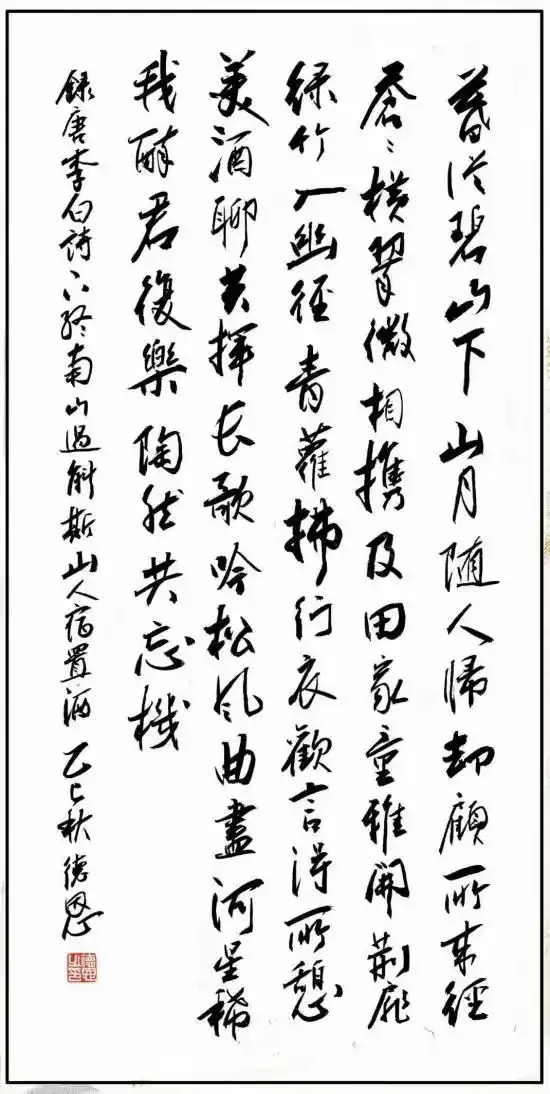 暮從碧山下山月随人歸却顧所來徑
蒼々橫翠微相攜及田家童稚開荊扉
綠竹入幽徑青蘿拂行衣歡言得所憩
美酒聊共揮長歌吟松風曲盡河星稀
我醉君復樂陶然共忘機
録唐李白詩下終南山過斛斯山人宿置酒 乙巳秋德恩